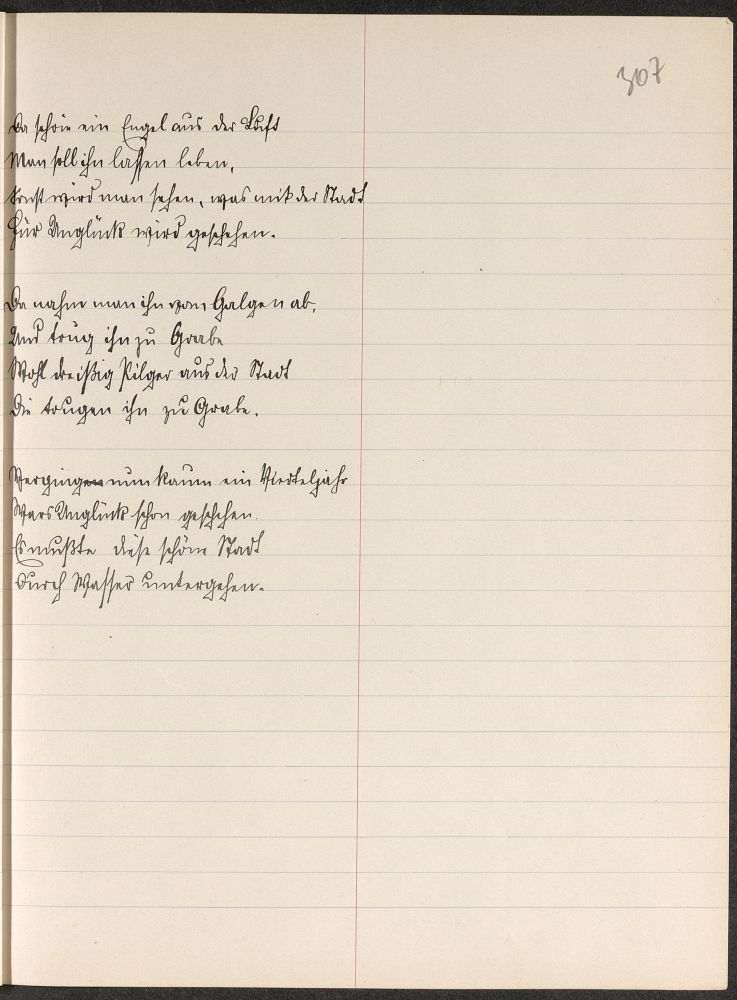 307
Da schrie ein Engel aus der Luft
Man soll ihn lassen leben,
Sonst wird man sehen, was mit der Stadt
Für Unglück wird geschehen.
Da nahm man ihn vom Galgen ab,
Und trug ihn zu Grabe
Wohl dreißig Pilger aus der Stadt
Die trugen ihn zu Grabe.
Verging nun kaum ein Vierteljahr
Wars Unglück schon geschehen.
Es mußte diese schöne Stadt
Durch Wasser untergehen.